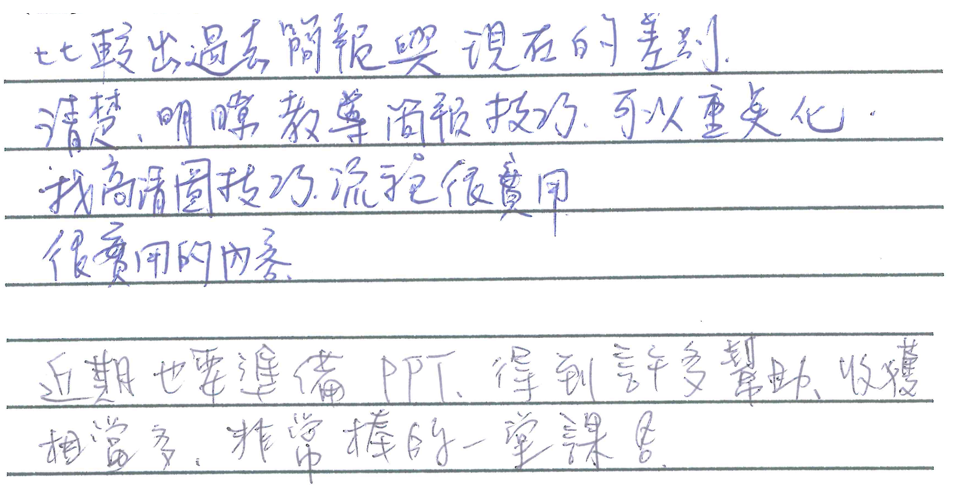 比較出過去簡報與現在的差別.
清楚、明瞭教導簡報技巧.可以重點化.
找高清圖技巧.流程很實用
很實用的內容.
近期也要準備PPT、得到許多幫助、收獲
相當多、非常棒的一堂課